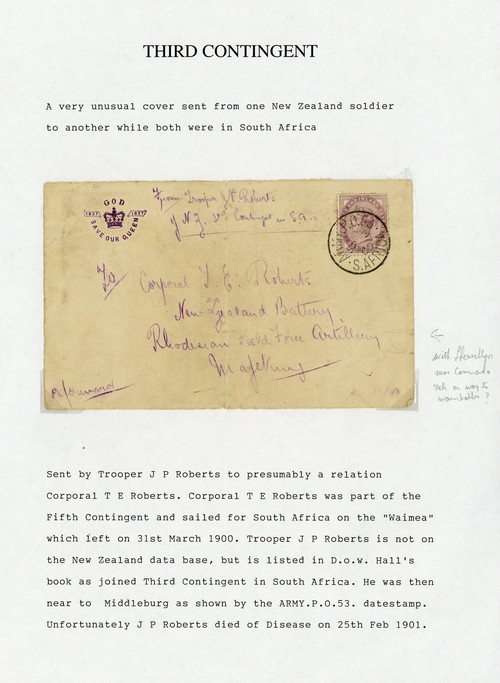 THIRD CONTINGENT
A very unusual cover sent from one New Zealand soldier
to another while both were in South Africa
GOD
1837 1897
SAVE OUR QUEEN
From Trooper J P Roberts
N Z 3rd Contingent in S.A.
ARMY P.O. 53
S. AFRICA
To
Corporal T. E. Roberts
New Zealand Battery
Rhodesian Field Force Artillery
Mafeking
or forward
with Llewellyn
near
on way to
Sent by Trooper J P Roberts to presumably a relation
Corporal T E Roberts. Corporal T E Roberts was part of the
Fifth Contingent and sailed for South Africa on the "Waimea"
which left on 31st March 1900. Trooper J P Roberts is not on
the New Zealand data base, but is listed in D.o.w. Hall's
book as joined Third Contingent in South Africa. He was then
near to Middleburg as shown by the ARMY.P.O.53. datestamp.
Unfortunately J P Roberts died of Disease on 25th Feb 1901.